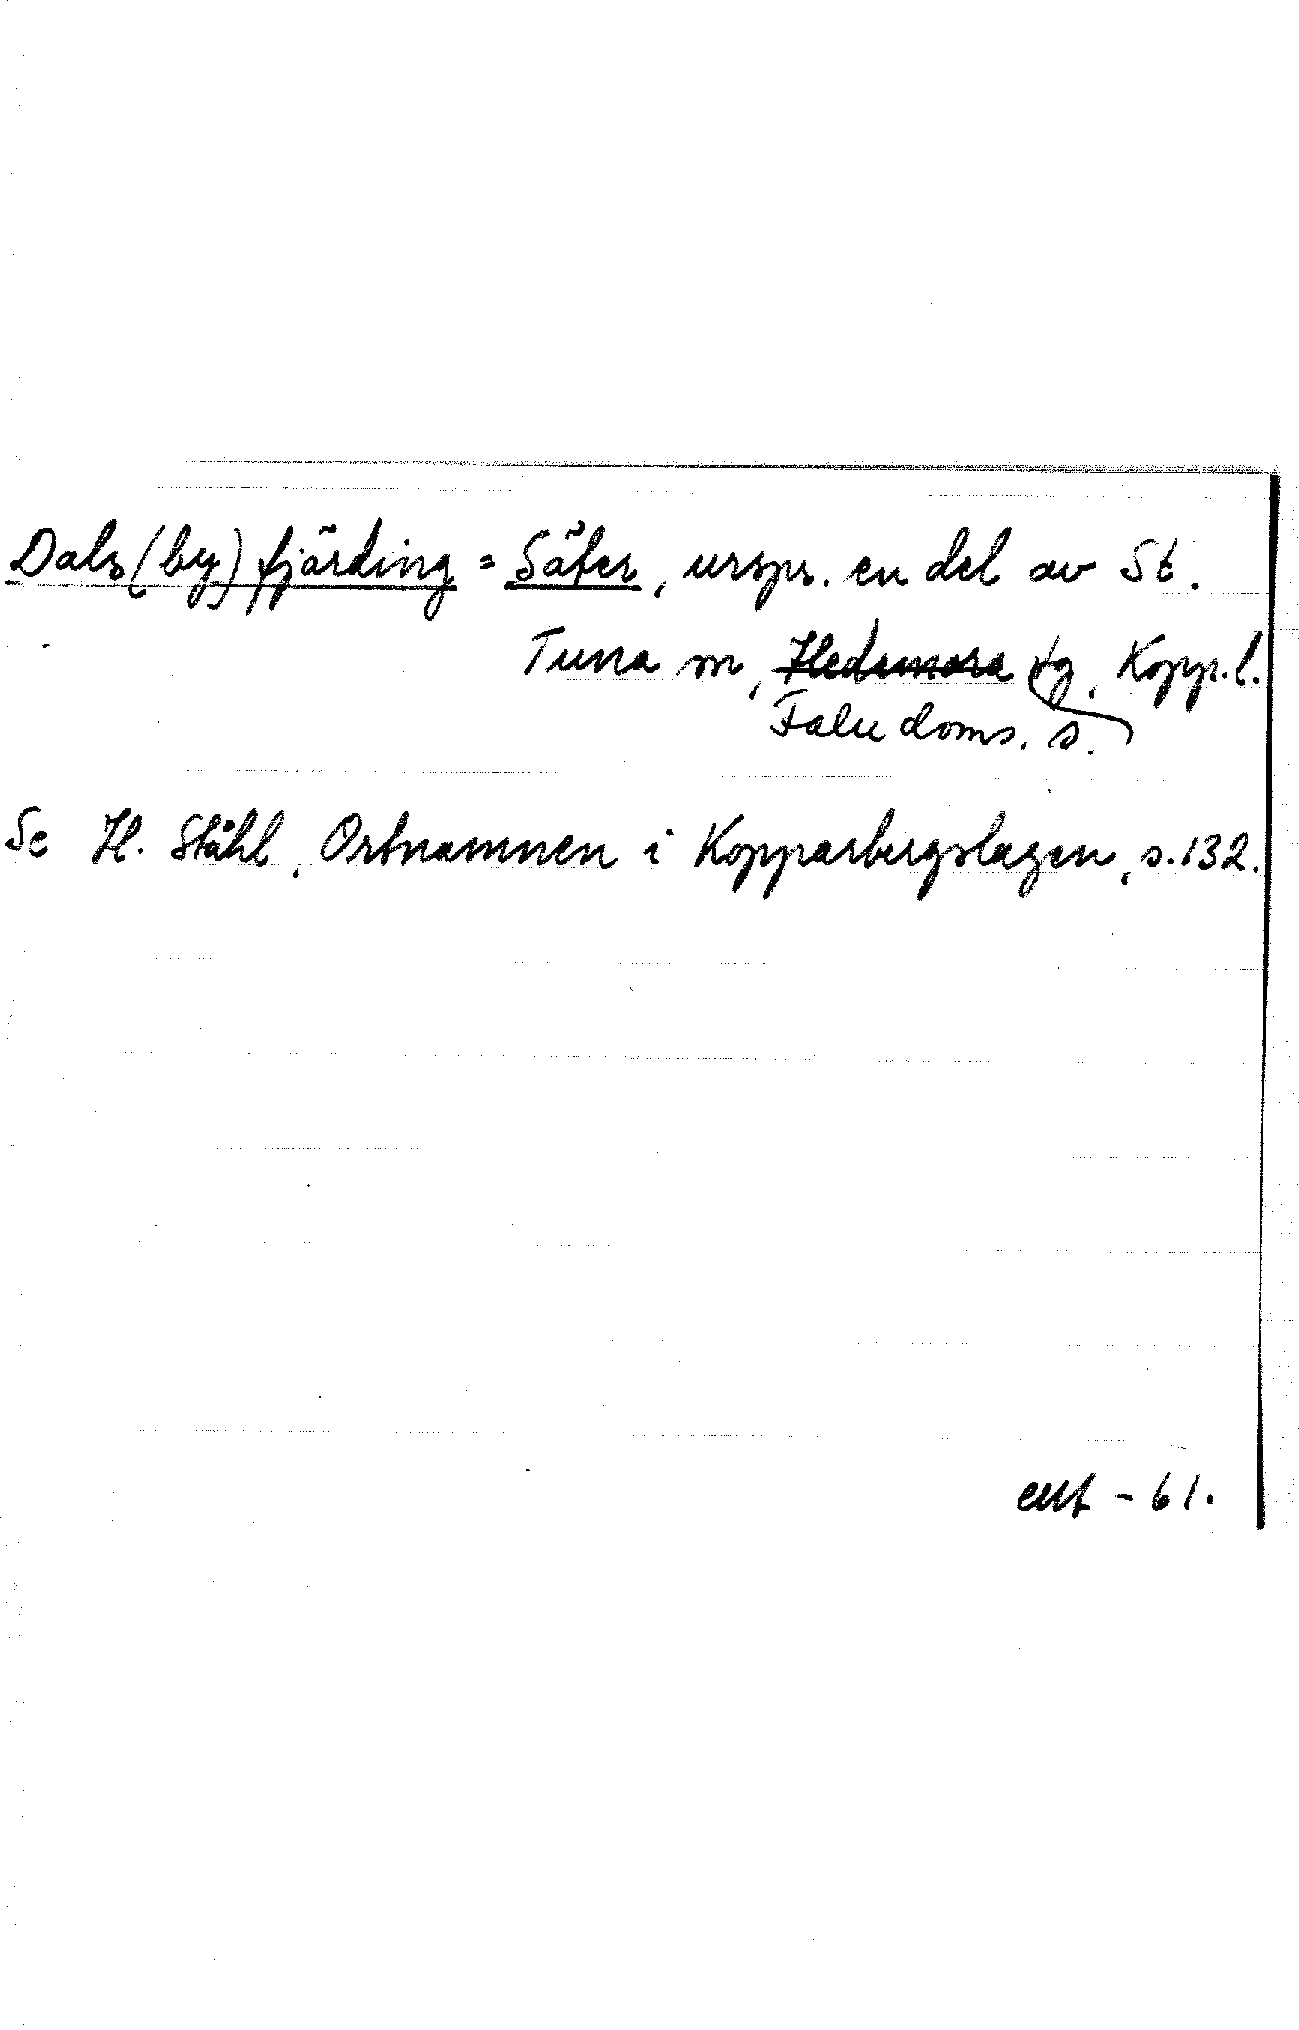 Dals(by)fjärding = Säter, urspr. en del av St.
Tuna sn, Hedemora tg, Kopp. l.
Falu doms. s.
Se H. Ståhl, Ortnamnen i Kopparbergslagen, s. 132.
-61.